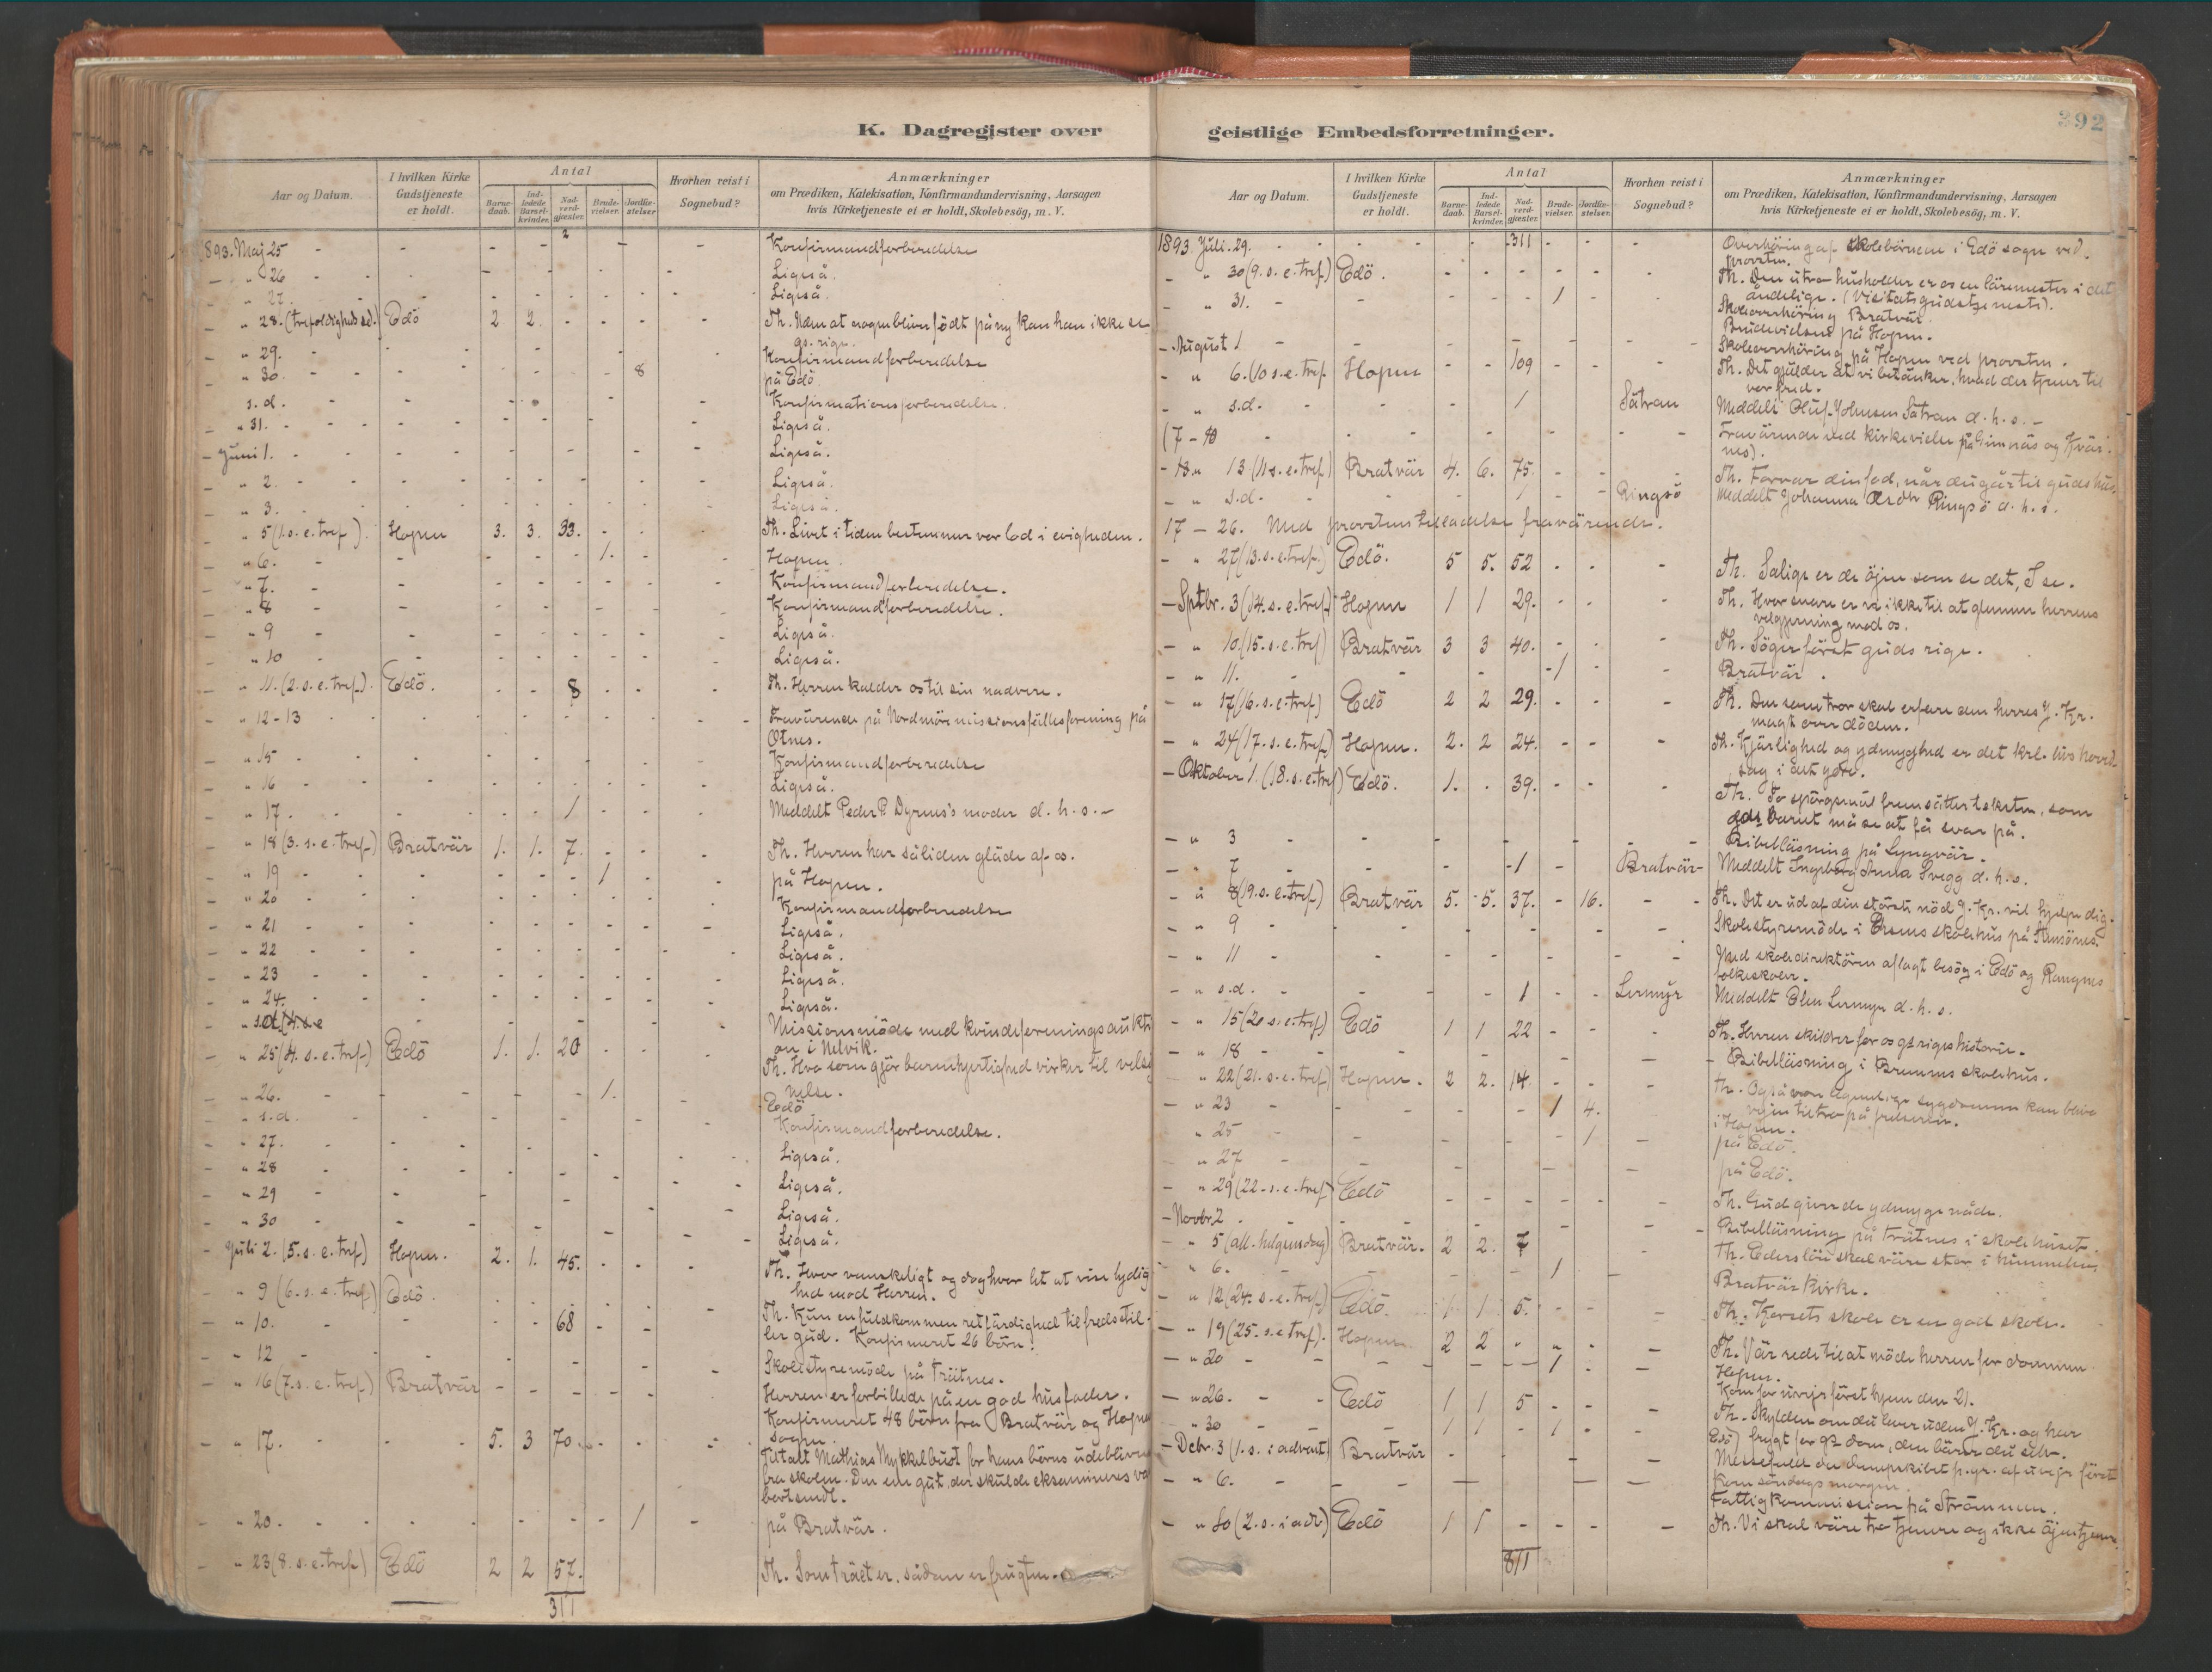 K. Dagregister over
Aar og Datum. I hvilken Kirke Gudstjeneste er holdt. Antal Barnedaab. Indledede Barselkvinder. Nadverdgjæster. Brudevielser. Jordfæstelser Hvorhen reist i Sognebud? Anmærkninger
om Prædiken, Katekisation, Konfirmandundervisning, Aarsagen
hvis Kirketjeneste ei er holdt, Skolebesög, m. V.
1893. Maj 25 - - - - 2 - - Konfirmandforberedelse
" 26 Ligeså.
" 27. Ligeså.
" 28. (trefoldigheds sd.) Edö 2 2. Th. Uden at nogen bliver födt påny kan han ikke se
gs. rige.
" 29. Konfirmandforberedelse
" 30. 8 på Edö.
s. d. Konfirmationsforberedelse.
" 31. Ligeså.
Juni 1. Ligeså.
" 2. Ligeså.
" 3. Ligeså.
" 5 (1. s. e. tref.). Hopen 3. 3. 33. Th. Livet i tiden bestemmer vor lod i evigheden.
" 6. 1. Hopen.
" 7. Konfirmandforberedelse.
" 8 Konfirmandforberedelse.
" 9 Ligeså.
" 10 Ligeså.
" 11. (2. s. e. tref.). Edö. 8 Th. Herren kalder os til sin nadvere.
" 12-13 Fraværende på Nordmöre missionsfællesforening på
Otnes.
" 15 Konfirmandforberedelse
" 16 Ligeså.
" 17. 1 Meddelt Peder P. Dyrnes's moder d. h. s. -
" 18 (3. s. e. tref.) Bratvär 1. 1. 7. Th. Herren har såliden gläde af os.
" 19 1 på Hopen.
" 20 Konfirmandforberedelse
" 21 Ligeså.
" 22 Ligeså.
" 23 Ligeså.
" 24. Ligeså.
" s.d. Missionsmöde med kvindeforeningsaukti
on i Nelvik.
" 25 (4. s. e. tref.) Edö 1. 1. 20 Th. Hva som gjör barmhjertighed virker til velsig
nelse.
" 26. 1. Edö
" s.d. Konfirmandforberedelse.
" 27. Ligeså.
" 28 Ligeså.
" 29 Ligeså.
" 30 Ligeså.
Juli 2. (5. s. e. tref) Hopen. 2. 1. 45. Th. Hvor vanskeligt og dog hvor let at vise lydig
hed mod Herren.
" 9 (6. s. e. tref.) Edö. Th. Kun en fuldkommen retfärdighed tilfredsstil-
ler gud. Konfirmeret 26 börn!
" 10. 68
" 12 Skolestyremöde på Trätnes.
" 16 (7. s. e. tref.) Bratvär Herren er forbillede på en god husfader.
Konfirmeret 48 börn fra Bratvär og Hopen
sogne.
" 17. 5. 3 70. Tiltalt Mathias Mykkelbust for hans börns udebliven
fra skolen. Den ene gut, der skulde eksamineres var
bortsendt.
" 20. 1 på Bratvär.
" 23 (8. s. e. tref.) Edö 2 2 57. Th. Som träet er, sådan er frugten.
311
geistlige Embedsforretninger.
392
Aar og Datum. I hvilken Kirke Gudstjeneste er holdt. Antal Barnedaab. Indledede Barselkvinder. Nadverdgjæster. Brudevielser. Jordfæstelser. Hvorhen reist i Sognebud? Anmærkninger
om Prædiken, Katekisation, Konfirmandundervisning, Aarsagen
hvis Kirketjeneste ei er holdt, Skolebesög, m. V.
1893. Juli. 29. 311 Overhöring af skolebörnene i Edö sogn ved
provsten.
" 30 (9. s. e. tref.) Edö. Th. Den utro husholder er os en läremester i det
åndelige. (Visitatsgudstjeneste).
" 31. 1 Skoleoverhöring Bratvär.
Brudevielse på Hopen.
August 1 Skoleoverhöring på Hopen ved provsten.
" 6. (10 s. e. tref. Hopen 109 Th. Det gjälder at vi betänker, hvad der tjener til
vor fred.
" s.d. 1 Sätran Meddelt Oluf Johnsen Sätran d. h. s. -
(7 - 10 Fraværende ved kirkevielse på Gimnäs og Kvär
nes).
" 13 (11 s. e. tref) Bratvär 4. 6. 75. Th. Forvar din fod, når du går til guds hus.
" s.d. 1 Ringsö Meddelt Johanna Olsdtr Ringsö d. h. s.
17 - 26. Med provstens tilladelse fraværende.
" 27 (13. s. e. tref.) Edö. 5 5. 52 Th. Salige er de öjne som se det, I se.
Sptbr. 3 (14. s. e. tref.) Hopen 1 1 29. Th. Hvor snare er vi ikke til at glemme herrens
velgjerning mod os.
" 10. (15. s. e. tref) Bratvär 3 3 40. Th. Söger först guds rige.
" 11. 1 Bratvär.
" 17 (16. s. e. tref) Edö 2 2 29. Th. Den som tror skal erfare den herres J. Kr.
magt over döden.
" 24 (17. s. e. tref) Hopen. 2. 2 24. Th. Kjärlighed og ydmyghed er det krl. livs hoved
sag i det ydre.
Oktober 1. (18. s. e. tref) Edö. 1. 39. Th. To spörgsmål fremsätter teksten, som
gds barnet må se at få svar på.
" 3 Bibelläsning på Lyngvär.
" 7 1 Bratvär Meddelt Ingeborg Anna Svegg d. h. s.
" 8 (19. s. e. tref) Bratvär 5. 5. 37. 16. Th. Det er ud af din störste nöd J. Kr. vil hjelpe dig.
" 9 Skolestyremöde i skolehus på
" 11 Med skoledirektören aflagt besög i Edö og
folkeskoler.
" s.d. 1 Lermyr Meddelt Lermyr d. h. s.
" 15 (20 s. e. tref) Edö 1 1 22 Th. Herren skildrer for os gs riges historie.
" 18 Bibelläsning i skolehus.
" 22 (21. s. e. tref) Hopen. 2 2. 14. Th. Også vore legemlige sygdomme kan blive
vejen til tro på frelseren.
" 23 1 4. i Hopen.
" 25 1 på Edö.
" 27 på Edö.
" 29 (22. s. e. tref) Edö Th. Gud giver de ydmyge nåde.
Novbr. 2 Bibelläsning på Trätnes i skolehuset.
" 5 (all. helgensdag) Bratvär. 2 2. 7 Th. Eders lön skal väre stor i himmelen.
" 6. 1 Bratvär kirke.
" 12 (24. s. e. tref) Edö. 1 1 5. Th. Korsets skole er en god skole.
" 19 (25. s. e. tref). Hopen 2 2 Th. Vär rede til at möde herren for dommen.
" 20 1 Hopen.
Kom for uvejr först hjem den 21.
" 26. Edö 1 1 5 Th. Skylden om du lever uden J. Kr. og har
frygt for gs dom, den bärer du selv.
" 30 1 1 1 Edö
Debr. 3 (1. s. i advent) Bratvär Messefald da dampskibet p. gr. af uvejr först
kom söndags morgen.
" 6. Fattigkommission på Strömmen.
" 10 (2. s. i adv.) Edö 1 1 Th. Vi skal väre tro tjenere og ikke öjentjenere
811